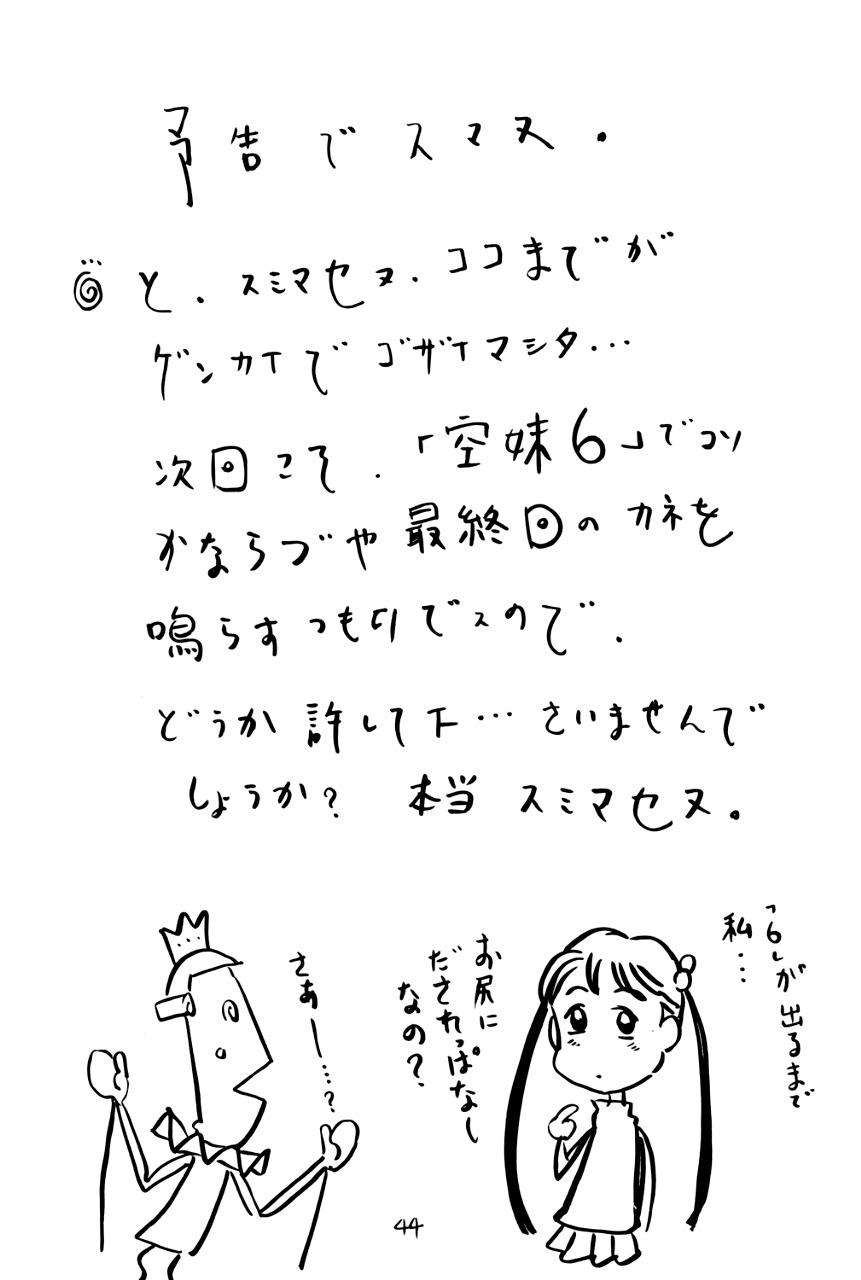 予告でスマヌ。
と、スミマセヌ、ココまでが
ゲンカイでゴザイマシタ…
次回こそ、「空妹6」でコソ
かならづや最終回のカネを
鳴らすつもりでスので、
どうか許して下…さいませんで
しょうか？ 本当スミマセヌ。
「6」が出るまで
私…
お尻に
だされっぱなし
なの？
さあー…？
44